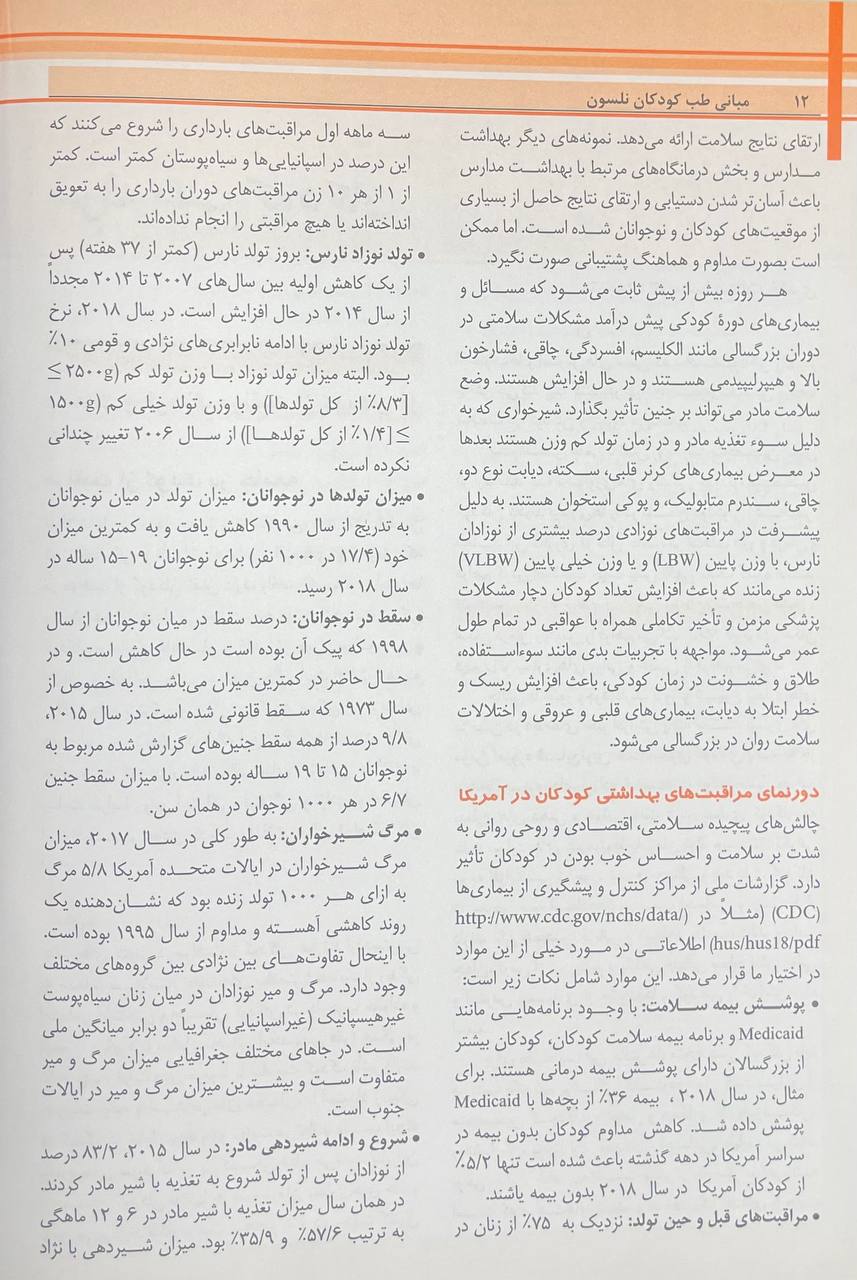 ۱۲ مبانی طب کودکان نلسون
ارتقای نتایج سلامت ارائه می‌دهد. نمونه‌های دیگر بهداشت
مدارس و بخش درمانگاه‌های مرتبط با بهداشت مدارس
باعث آسان‌تر شدن دستیابی و ارتقای نتایج حاصل از بسیاری
از موقعیت‌های کودکان و نوجوانان شده است. اما ممکن
است بصورت مداوم و هماهنگ پشتیبانی صورت نگیرد.
هر روزه بیش از پیش ثابت می‌شود که مسائل و
بیماری‌های دورهٔ کودکی پیش درآمد مشکلات سلامتی در
دوران بزرگسالی مانند الکلیسم، افسردگی، چاقی، فشارخون
بالا و هیپرلیپیدمی هستند و در حال افزایش هستند. وضع
سلامت مادر می‌تواند بر جنین تأثیر بگذارد. شیرخواری که به
دلیل سوء تغذیه مادر و در زمان تولد کم وزن هستند بعدها
در معرض بیماری‌های کرنر قلبی، سکته، دیابت نوع دو،
چاقی، سندرم متابولیک، و پوکی استخوان هستند. به دلیل
پیشرفت در مراقبت‌های نوزادی درصد بیشتری از نوزادان
نارس، با وزن پایین (LBW) و یا وزن خیلی پایین (VLBW)
زنده می‌مانند که باعث افزایش تعداد کودکان دچار مشکلات
پزشکی مزمن و تأخیر تکاملی همراه با عواقبی در تمام طول
عمر می‌شود. مواجهه با تجربیات بدی مانند سوءاستفاده،
طلاق و خشونت در زمان کودکی، باعث افزایش ریسک و
خطر ابتلا به دیابت، بیماری‌های قلبی و عروقی و اختلالات
سلامت روان در بزرگسالی می‌شود.
دورنمای مراقبت‌های بهداشتی کودکان در آمریکا
چالش‌های پیچیده سلامتی، اقتصادی و روحی روانی به
شدت بر سلامت و احساس خوب بودن در کودکان تأثیر
دارد. گزارشات ملی از مراکز کنترل و پیشگیری از بیماری‌ها
(CDC) (مثلاً در http://www.cdc.gov/nchs/data/
hus/hus18/pdf) اطلاعاتی در مورد خیلی از این موارد
در اختیار ما قرار می‌دهد. این موارد شامل نکات زیر است:
• پوشش بیمه سلامت: با وجود برنامه‌هایی مانند
Medicaid و برنامه بیمه سلامت کودکان، کودکان بیشتر
از بزرگسالان دارای پوشش بیمه درمانی هستند. برای
مثال، در سال ۲۰۱۸ ، بیمه ۳۶٪ از بچه‌ها با Medicaid
پوشش داده شد. کاهش مداوم کودکان بدون بیمه در
سراسر آمریکا در دهه گذشته باعث شده است تنها ۵/۲٪
از کودکان آمریکا در سال ۲۰۱۸ بدون بیمه یاشند.
• مراقبت‌های قبل و حین تولد: نزدیک به ۷۵٪ از زنان در
سه ماهه اول مراقبت‌های بارداری را شروع می‌کنند که
این درصد در اسپانیایی‌ها و سیاه‌پوستان کمتر است. کمتر
از ۱ از هر ۱۰ زن مراقبت‌های دوران بارداری را به تعویق
انداخته‌اند یا هیچ مراقبتی را انجام نداده‌اند.
• تولد نوزاد نارس: بروز تولد نارس (کمتر از ۳۷ هفته) پس
از یک کاهش اولیه بین سال‌های ۲۰۰۷ تا ۲۰۱۴ مجدداً
از سال ۲۰۱۴ در حال افزایش است. در سال ۲۰۱۸، نرخ
تولد نوزاد نارس با ادامه نابرابری‌های نژادی و قومی ۱۰٪
بود. البته میزان تولد نوزاد با وزن تولد کم (۲۵۰۰g ≥
[۸/۳٪ از کل تولدها]) و با وزن تولد خیلی کم (۱۵۰۰g
≥ [۱/۴٪ از کل تولدها]) از سال ۲۰۰۶ تغییر چندانی
نکرده است.
• میزان تولدها در نوجوانان: میزان تولد در میان نوجوانان
به تدریج از سال ۱۹۹۰ کاهش یافت و به کمترین میزان
خود (۱۷/۴ در ۱۰۰۰ نفر) برای نوجوانان ۱۹–۱۵ ساله در
سال ۲۰۱۸ رسید.
• سقط در نوجوانان: درصد سقط در میان نوجوانان از سال
۱۹۹۸ که پیک آن بوده است در حال کاهش است. و در
حال حاضر در کمترین میزان می‌باشد. به خصوص از
سال ۱۹۷۳ که سقط قانونی شده است. در سال ۲۰۱۵،
۹/۸ درصد از همه سقط جنین‌های گزارش شده مربوط به
نوجوانان ۱۵ تا ۱۹ ساله بوده است. با میزان سقط جنین
۶/۷ در هر ۱۰۰۰ نوجوان در همان سن.
• مرگ شیرخواران: به طور کلی در سال ۲۰۱۷، میزان
مرگ شیرخواران در ایالات متحده آمریکا ۵/۸ مرگ
به ازای هر ۱۰۰۰ تولد زنده بود که نشان‌دهنده یک
روند کاهشی آهسته و مداوم از سال ۱۹۹۵ بوده است.
با اینحال تفاوت‌های بین نژادی بین گروه‌های مختلف
وجود دارد. مرگ و میر نوزادان در میان زنان سیاه‌پوست
غیرهیسپانیک (غیراسپانیایی) تقریباً دو برابر میانگین ملی
است. در جاهای مختلف جغرافیایی میزان مرگ و میر
متفاوت است و بیشترین میزان مرگ و میر در ایالات
جنوب است.
• شروع و ادامه شیردهی مادر: در سال ۲۰۱۵، ۸۳/۲ درصد
از نوزادان پس از تولد شروع به تغذیه با شیر مادر کردند.
در همان سال میزان تغذیه با شیر مادر در ۶ و ۱۲ ماهگی
به ترتیب ۵۷/۶٪ و ۳۵/۹٪ بود. میزان شیردهی با نژاد